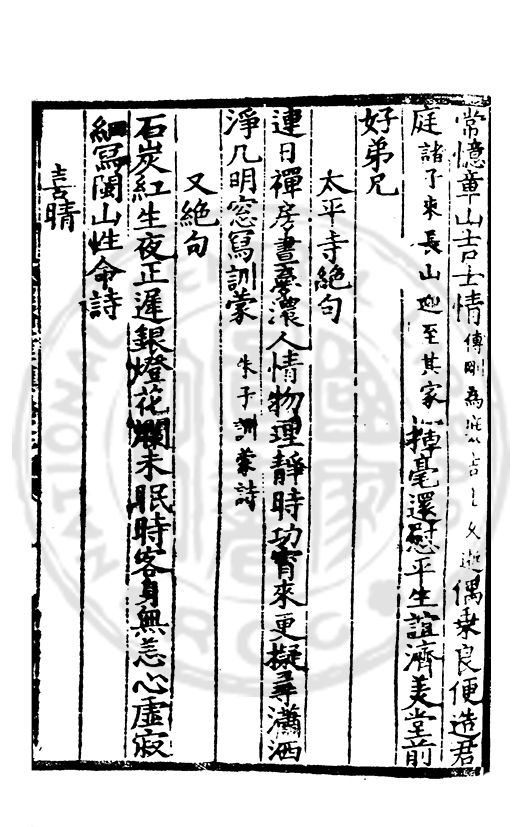 常憶章山吉士情傳剛為 偶乗良便造君
庭諸子來長山迎至其家揮毫還慰平生誼濟美堂前
好弟兄
太平寺絶句
連日禪房晝夢濃人情物理靜時功宵來更擬尋瀟洒
淨几明窓寫訓蒙朱子訓蒙詩
又絶句
石炭紅生夜正遲銀燈花爛未眠時客身無恙心虛寂
細寫閩山性命詩
喜晴